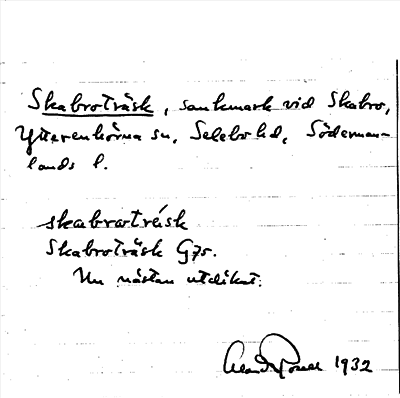 Skabroträsk, sankmark vid Skabro,
Ytterenhörna sn, Selebo hd, Söderman-
lands l.
skabrotrésk
Skabroträsk G75.
Nu nästan utdikat.
1932